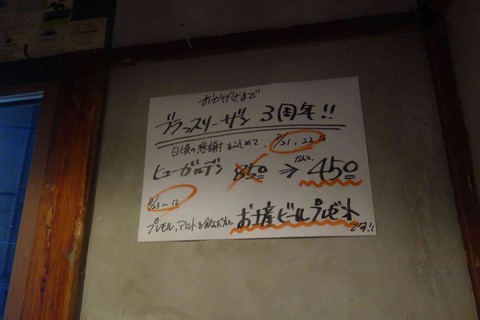 おかげさまで
ブラッスリーザン 3周年!!
日頃の感謝を込めて、 21, 22
ヒューガルデン 850 ⇒ なんと、 450
23〜
プレモル、アルトを飲んだ方に お土産ビールプレゼント
です!!